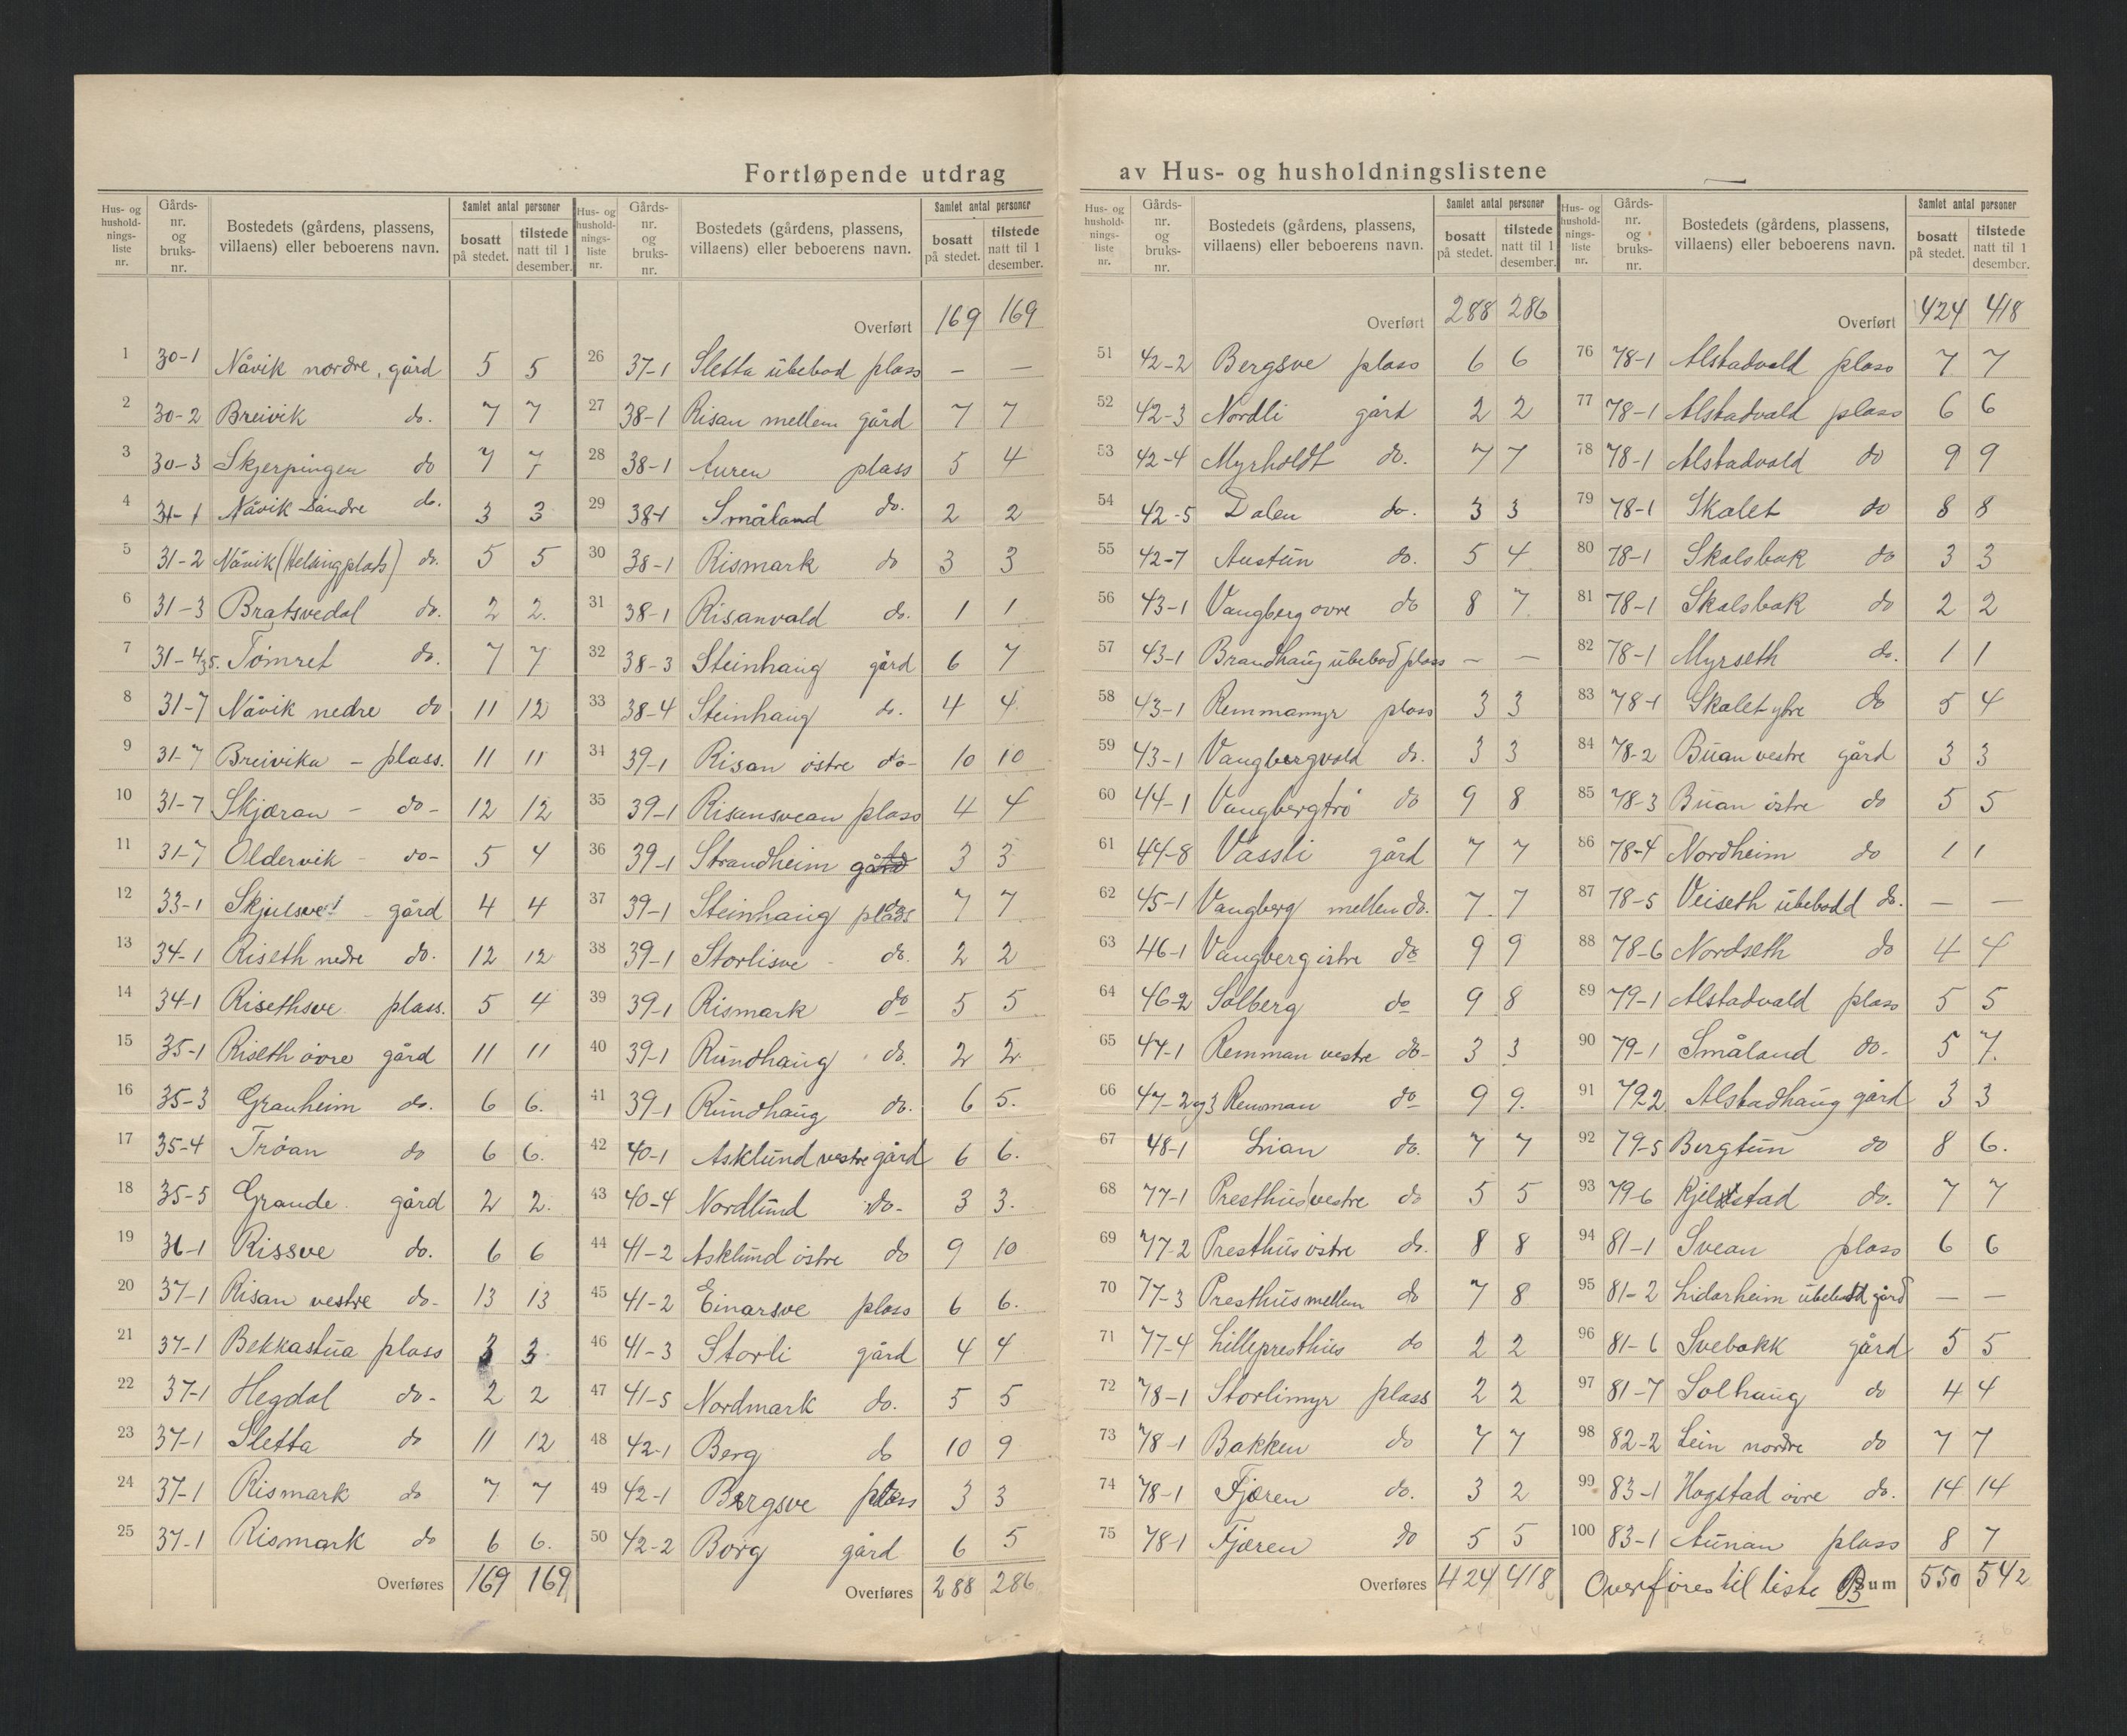 Fortløpende utdrag av Hus- og husholdningslistene
Hus- og hushold-nings-liste nr. Gårds-nr. og bruks-nr. Bostedets (gårdens, plassens, villaens) eller beboerens navn. Samlet antal personer bosatt på stedet. tilstede natt til 1 desember.
1 30-1 Nåvik nordre, gård 5 5
2 30-2 Breivik do. 7 7
3 30-3 Skjerpingen do 7 7
4 31-1 Nåvik söndre do. 3 3
5 31-2 Nåvik (Helsingplads) do. 5 5
6 31-3 Bratsvedal do. 2 2.
7 31-4,35. Tömret do. 7 7
8 31-7 Nåvik nedre do 11 12
9 31-7 Breivika - plass. 11 11
10 31-7 Skjæran - do- 12 12
11 31-7 Oldervik - do- 5 4
12 33-1 Skjulsvet - gård 4 4
13 34-1 Riseth nedre do. 12 12
14 34-1 Risethsve plass. 5 4
15 35-1 Riseth övre gård 11 11
16 35-3 Granheim do. 6 6.
17 35-4 Tröan do 6 6.
18 35-5 Grande. gård 2 2.
19 36-1 Rissve do. 6 6
20 37-1 Risan vestre do- 13 13
21 37-1 Bekkastua plass 3 3.
22 37-1 Hegdal do- 2 2
23 37-1 Sletta do 11 12
24 37-1 Rismark do 7 7
25 37-1 Rismark do 6 6.
Overføres 169 169
Hus- og hushold-nings-liste nr. Gårds-nr. og bruks-nr. Bostedets (gårdens, plassens, villaens) eller beboerens navn. Samlet antal personer bosatt på stedet. tilstede natt til 1 desember.
Overført 169 169
26 37-1 Sletta ubebod plass - -
27 38-1 Risan mellem gård 7 7
28 38-1 Auren plass 5 4
29 38-1 Småland do. 2 2
30 38-1 Rismark do 3 3
31 38-1 Risanvald do. 1 1
32 38-3 Steinhaug gård 6 7
33 38-4 Steinhaug do. 4 4
34 39-1 Risan östre do- 10 10
35 39-1 Risansvean plass 4 4
36 39-1 Strandheim gård 3 3
37 39-1 Steinhaug plass 7 7
38 39-1 Storlisve - do. 2 2
39 39-1 Rismark do 5 5
40 39-1 Rundhaug do. 2 2
41 39-1 Rundhaug do. 6 5.
42 40-1 Asklund vestre gård 6 6.
43 40-4 Nordlund do- 3 3.
44 41-2 Asklund östre do 9 10
45 41-2 Einarsve plass 6 6.
46 41-3 Storli gård 4 4
47 41-5 Nordmark do. 5 5
48 42-1 Berg do 10 9
49 42-1 Bergsve plass 3 3
50 42-2 Borg gård 6 5
Overføres 288 286
Hus- og hushold-nings-liste nr. Gårds-nr. og bruks-nr. Bostedets (gårdens, plassens, villaens) eller beboerens navn. Samlet antal personer bosatt på stedet. tilstede natt til 1 desember.
Overført 288 286
51 42-2 Bergsve plass 6 6
52 42-3 Nordli gård 2 2
53 42-4 Myrholdt do. 7 7
54 42-5 Dalen do. 3 3
55 42-7 Austun do. 5 4
56 43-1 Vangberg övre do 8 7
57 43-1 Brandhaug ubebod plass - -
58 43-1 Remmamyr plass 3 3
59 43-1 Vangbergvald do. 3 3
60 44-1 Vangbergtrö do 9 8
61 44-8 Vassli gård 7 7
62 45-1 Vangberg mellem do. 7. 7
63 46-1 Vangberg östre do 9 9
64 46-2 Solberg do 9 8
65 47-1 Remman vestre do- 3 3
66 47-2 og 3 Remman do 9 9.
67 48-1 Lian do. 7 7
68 77-1 Presthus vestre do 5 5
69 77-2 Presthus östre do. 8 8
70 77-3 Presthus mellem do 7 8
71 77-4 Lillepresthus do 2 2
72 78-1 Storlimyr plass 2 2
73 78-1 Bakken do 7 7
74 78-1 Fjæren do. 3 2
75 78-1 Fjæren do 5 5
Overføres 424 418
Hus- og hushold-nings-liste nr. Gårds-nr. og bruks-nr. Bostedets (gårdens, plassens, villaens) eller beboerens navn. Samlet antal personer bosatt på stedet. tilstede natt til 1 desember.
Overført 424 418
76 78-1 Alstadvald plass 7 7
77 78-1 Alstadvald plass 6 6
78 78-1 Alstadvald do 9 9
79 78-1 Skalet do 8 8
80 78-1 Skalsbak do 3 3
81 78-1 Skalsbak do 2 2
82 78-1 Myrseth do. 1 1
83 78-1 Skalet ytre do 5 4
84 78-2 Buan vestre gård 3 3
85 78-3 Buan östre do 5 5
86 78-4 Nordheim do 1 1
87 78-5 Veiseth ubebodd do. - -
88 78-6 Nordseth do 4 4
89 79-1 Alstadvald plass 5 5
90 79-1 Småland do- 5 7.
91 79 2 Alstadhaug gård 3 3
92 79-5 Bergtun do 8 6.
93 79-6 Kjelstad do. 7 7
94 81-1 Svean plass 6 6
95 81-2 Lidarheim ubebodd gård - -
96 81-6 Svebakk gård 5 5
97 81-7 Solhaug do 4 4
98 82-2 Lein nordre do 7 7
99 83-1 Hogstad övre do. 14 14
100 83-1 Aunan plass 8 7
Overføres til liste B Sum 550 542